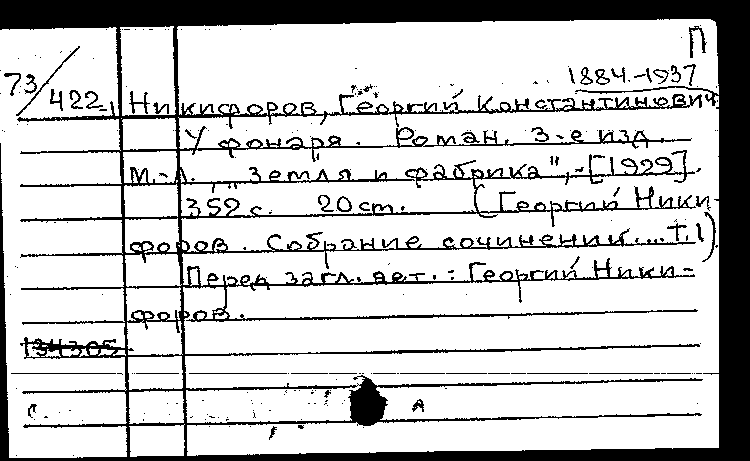 П
1884-1937
73/422-1 Никифоров, Георгий Константинович
У фонаря. Роман. 3-е изд.
М.-Л., „Земля и фабрика", [1929].
352 с. 20 cm. (Георгий Ники-
форов. Собрание сочинений.... Т.1)
Перед загл. авт.: Георгий Ники-
форов.
134305
с. А